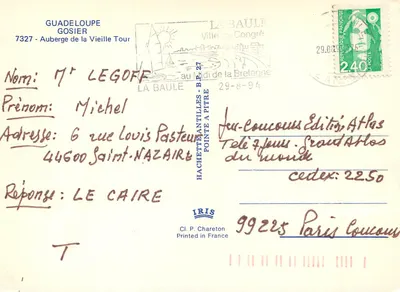 GUADELOUPE
GOSIER
7327 - Auberge de la Vieille Tour
LA BAULE
au Midi de la Bretagne
LA BAULE 29-8-94
2,40
Nom: Mr LEGOFF
Prénom: Michel
Adresse: 6 rue Louis Pasteur
44600 Saint-NAZAIRE
Réponse: LE CAIRE
T
HACHETTE ANTILLES - B.P. 27
POINTE A PITRE
IRIS
Cl. P. Chareton
Printed in France
Jeu-Concours Edition Atlas
Télé 7 Jours - Grand Atlas
du monde
Cedex: 2250
99225 Paris Concours